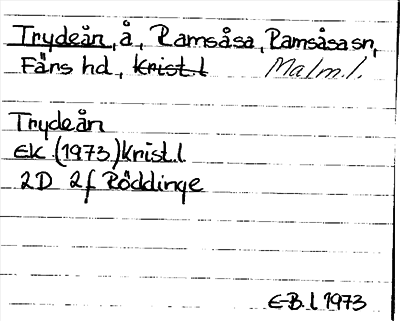 Trydeån, å, Ramsåsa, Ramsåsa sn,
Färs hd, Krist. l Malm. l.
Trydeån
EK (1973) Krist. l
2D 2f Röddinge
E-B. l 1973